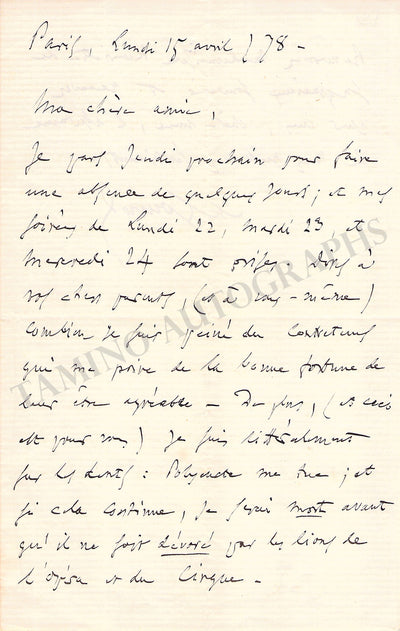 Paris, Lundi 15 avril /78 -
Ma chère amie,
Je pars Jeudi prochain pour faire
une absence de quelques jours ; et mes
soirées de Lundi 22, mardi 23, et
mercredi 24 sont prises. dites à
vos chers parents, (et à vous-même)
combien je suis peiné du contretemps
qui me prive de la bonne fortune de
leur être agréable - De plus, (et ceci
est pour vous) je suis littéralement
sur les dents : Polyeucte me tue ; et
si cela continue, je serai mort avant
qu'il ne soit dévoré par les lions de
l'opéra et du Cirque -
TAMINO AUTOGRAPHS